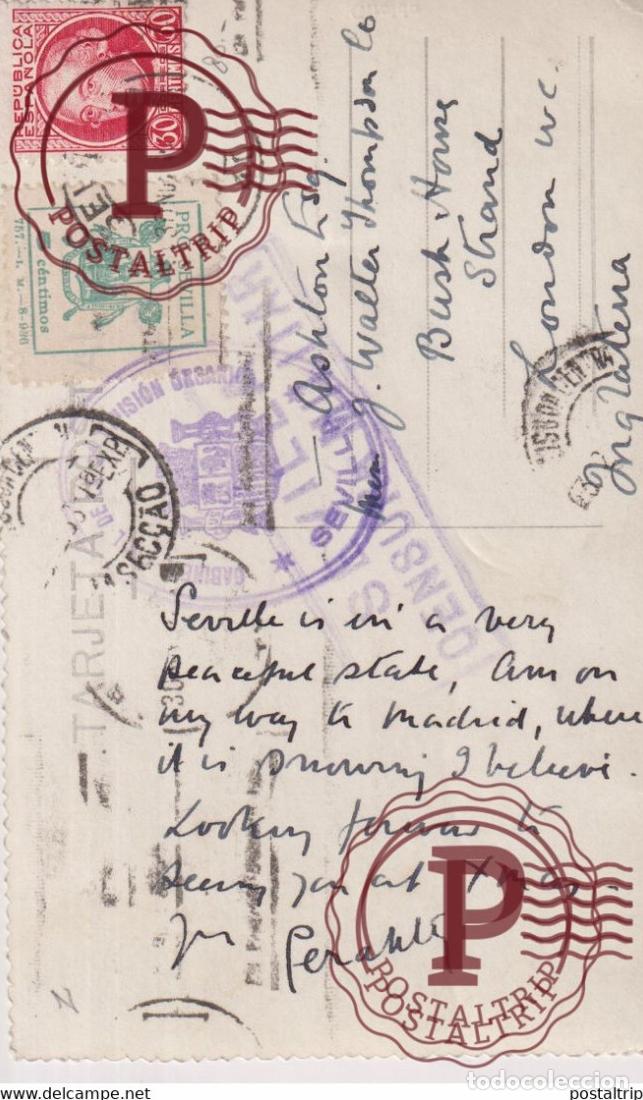 REPUBLICA
ESPAÑOLA
30
CENTIMOS
SEVILLA
5 céntimos
TARJETA
SEVILLA
CENSURA
MILITAR
SECÇÃO
Ashton Esq.
J. Walter Thompson Co
Bush House
Strand
London W.C.
Inglaterra
Seville is in a very
peaceful state, am on
my way to Madrid, where
it is snowing I believe.
Looking forward to
seeing you at Xmas.
P
POSTALTRIP
P
POSTALTRIP
POSTALTRIP
todocoleccion
www.todocoleccion.net
postaltrip